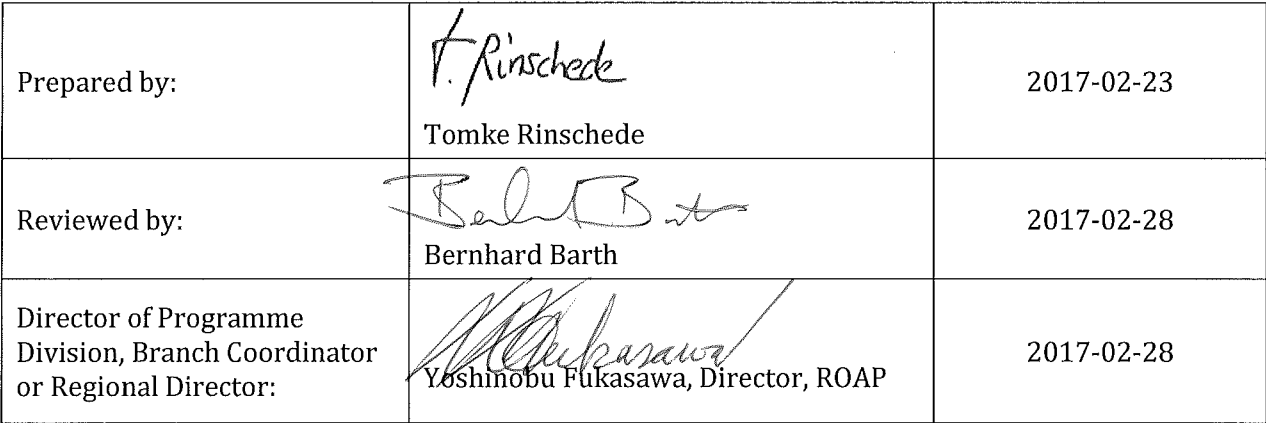 Prepared by:
T. Rinschede
Tomke Rinschede
2017-02-23
Reviewed by:
Bernhard Barth
Bernhard Barth
2017-02-28
Director of Programme
Division, Branch Coordinator
or Regional Director:
Fukasawa
Yoshinobu Fukasawa, Director, ROAP
2017-02-28